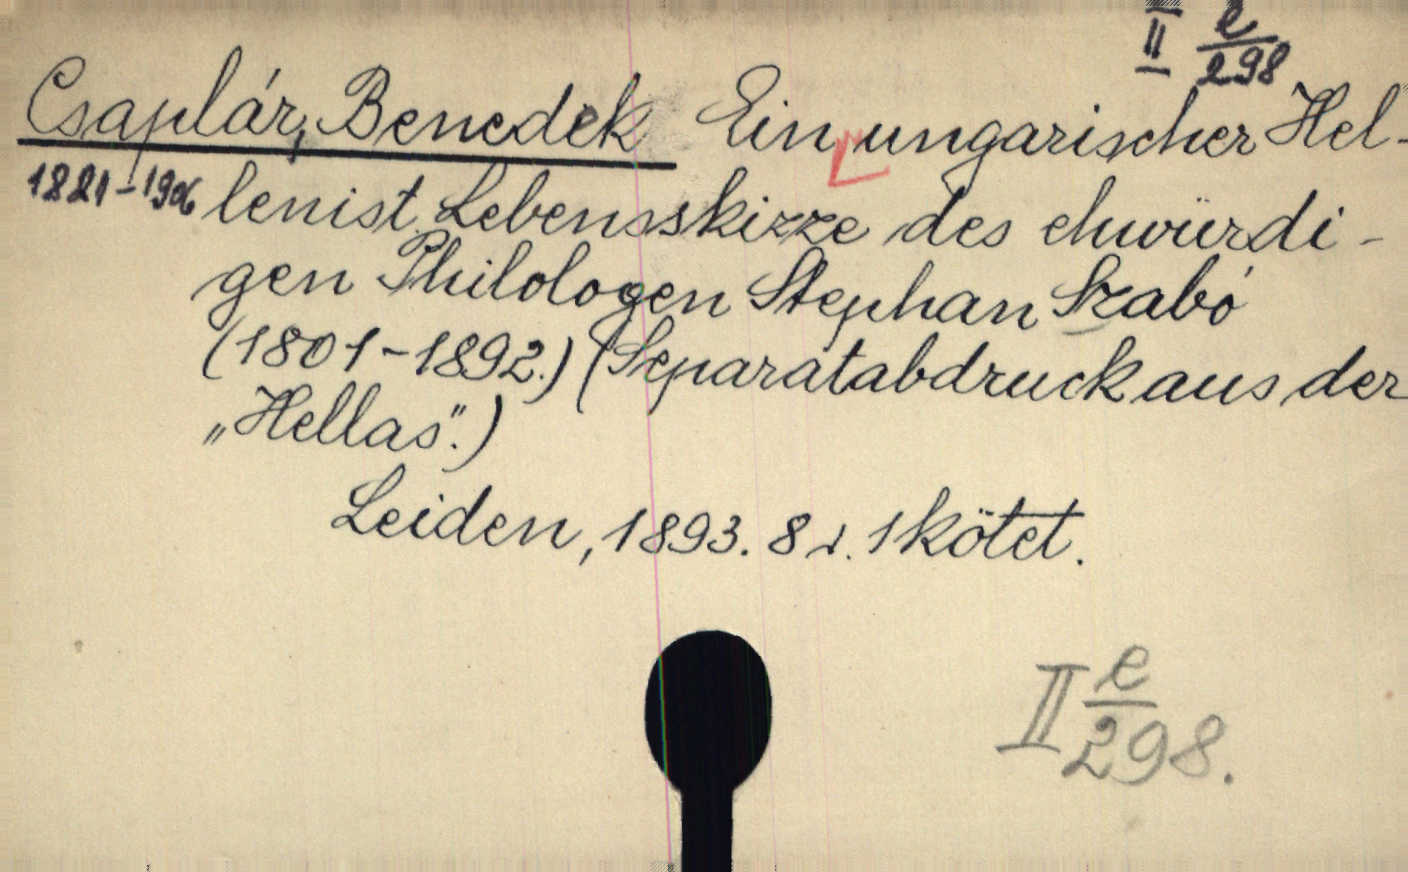 II e/298
Csaplár, Benedek Ein ungarischer Hel-
1821-1906 lenist. Lebensskizze des ehwürdi-
gen Philologen Stephan Szabó
(1801-1892.) (Separatabdruck aus der
„Hellas".)
Leiden, 1893. 8 r. 1 kötet.
II e/298.